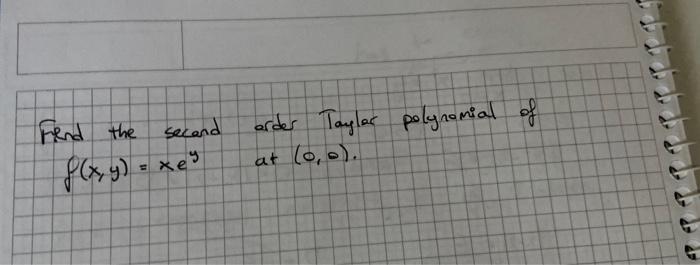 Find the second order Taylor polynomial of
f(x,y) = xe^y at (0,0).